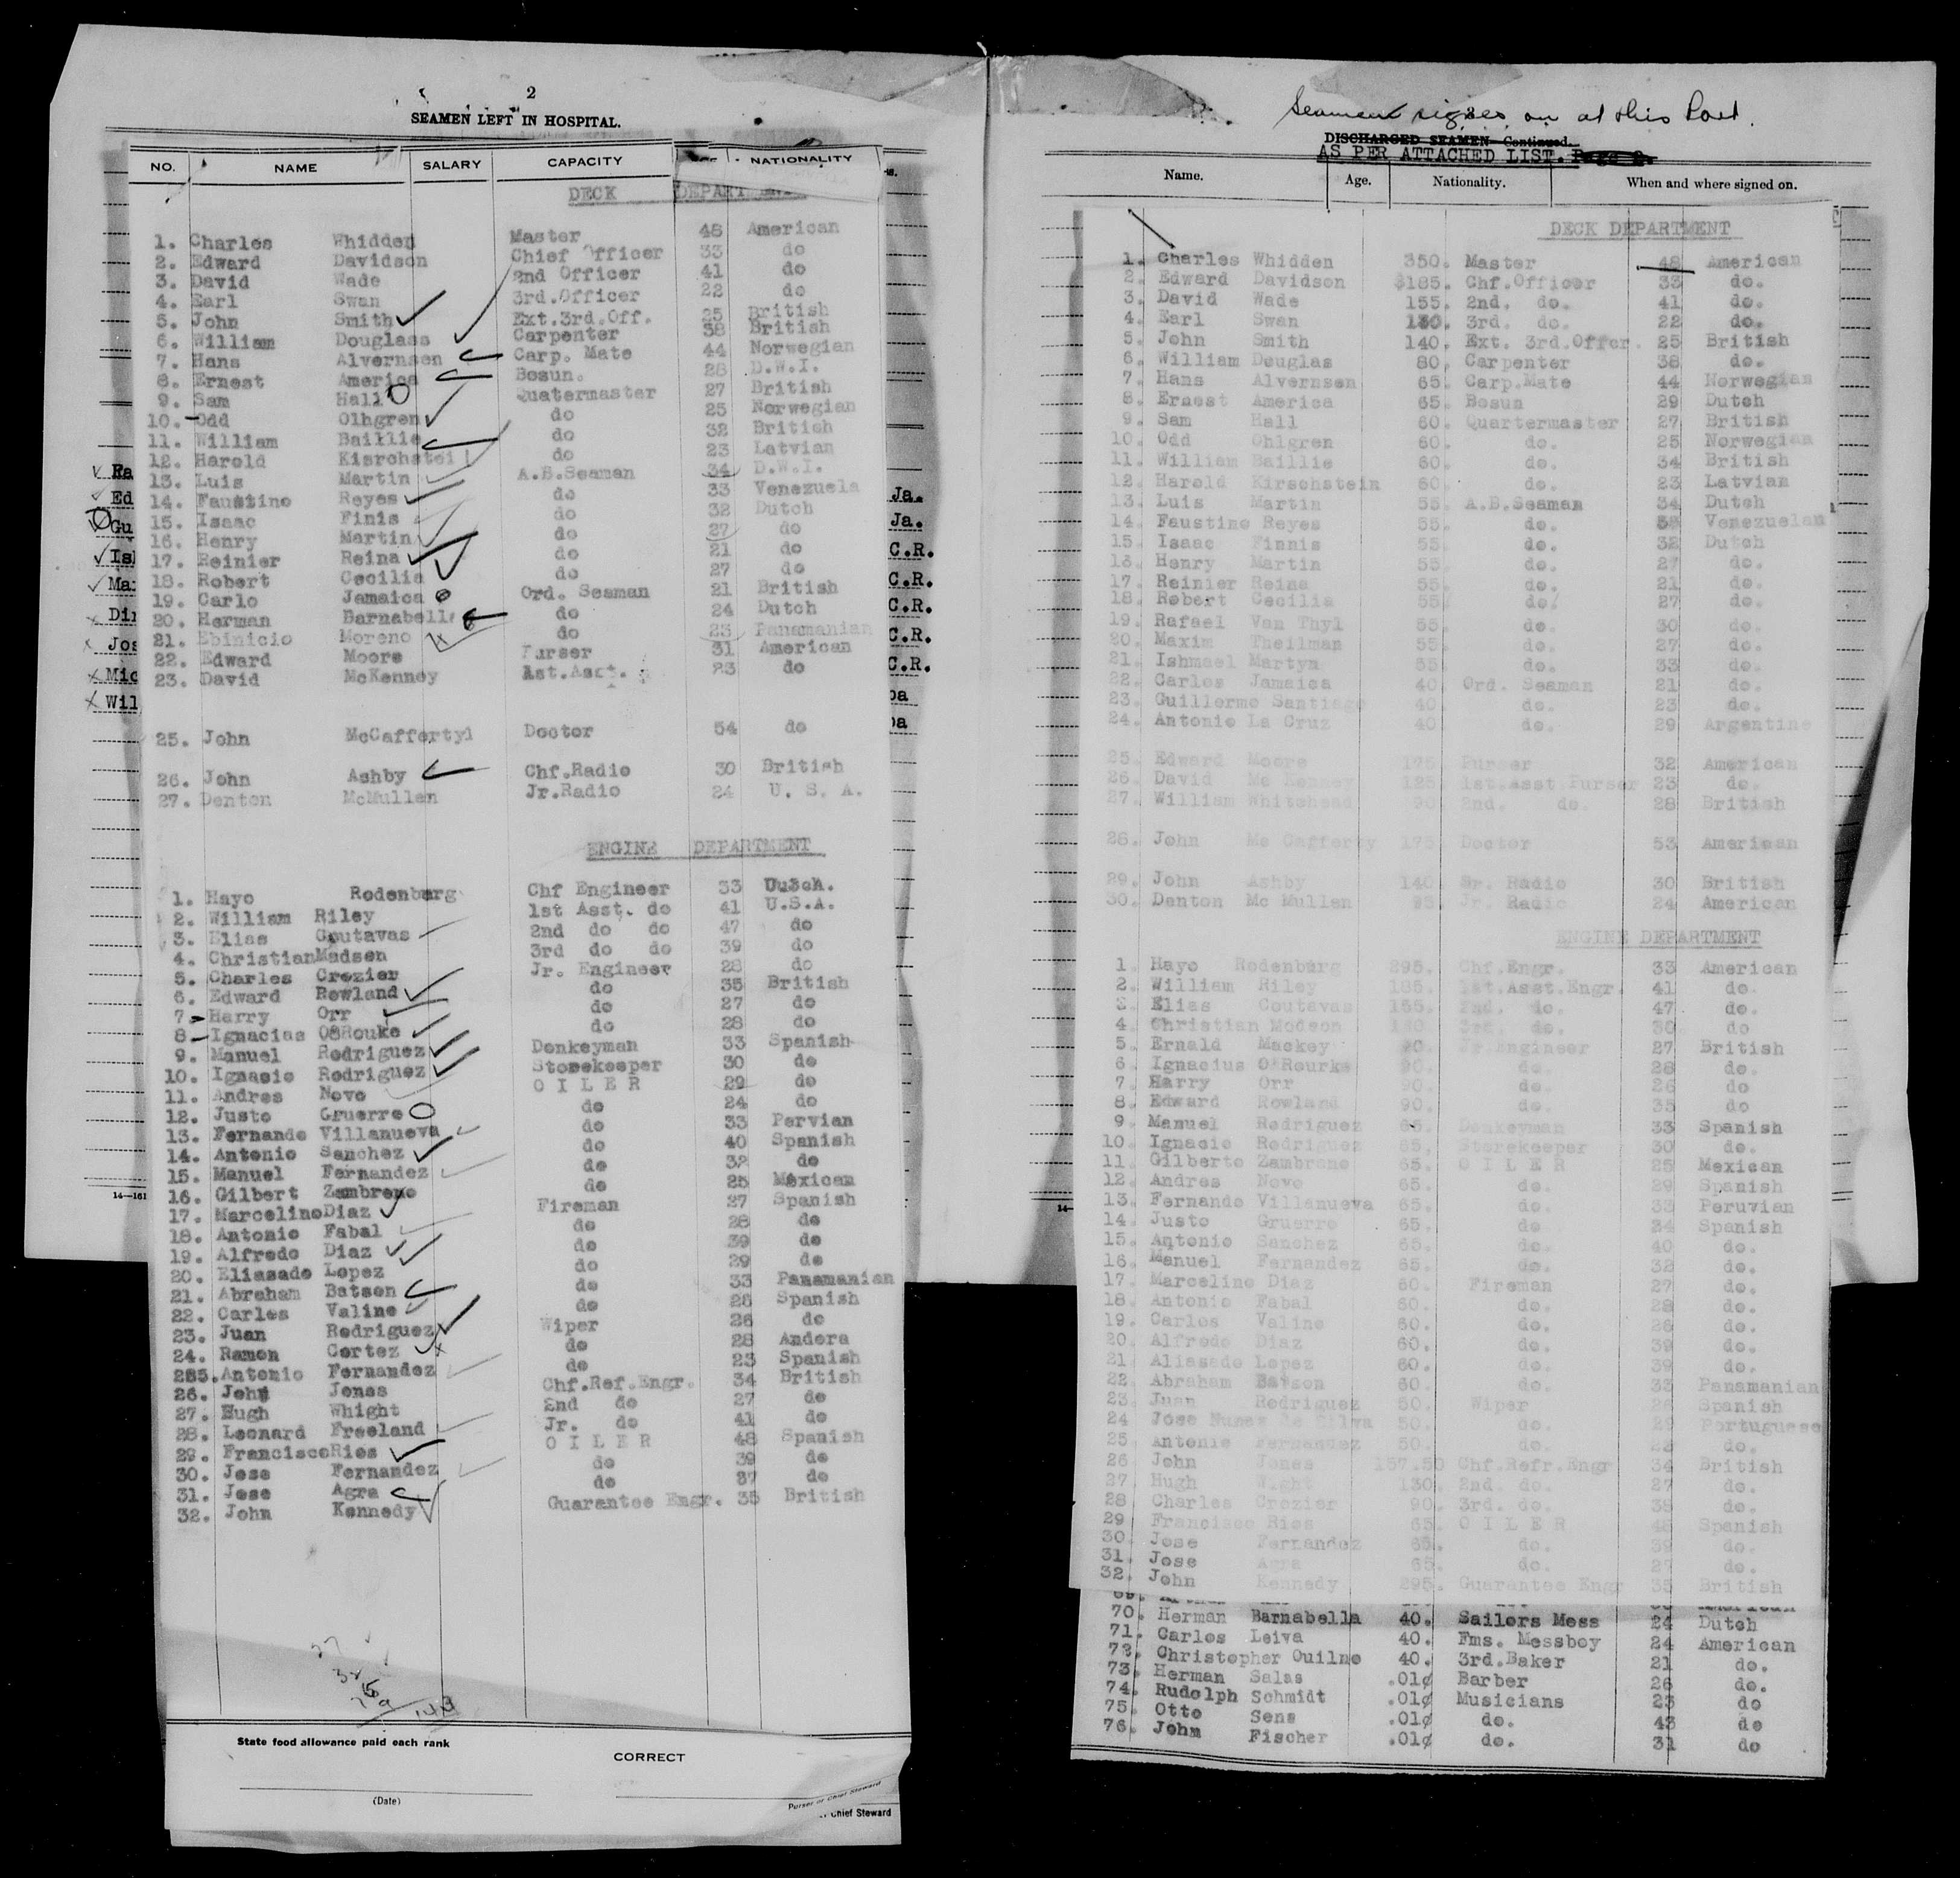 2
SEAMEN LEFT IN HOSPITAL.
NO. NAME SALARY CAPACITY NATIONALITY
DECK DEPARTMENT
1. Charles Whidden Master 48 American
2. Edward Davidson Chief Officer 33 do
3. David Wade 2nd Officer 41 do
4. Earl Swan 3rd.Officer 22 do
5. John Smith Ext.3rd.Off. 25 British
6. William Douglass Carpenter 38 British
7. Hans Alvernsen Carp. Mate 44 Norwegian
8. Ernest America Bosun. 28 D.W.I.
9. Sam Hall Quatermaster 27 British
10. Odd Olhgren do 25 Norwegian
11. William Baillie do 32 British
12. Harold Kisrchstei do 23 Latvian
13. Luis Martin A.B.Seaman 34 D.W.I.
14. Faustino Reyes do 33 Venezuela
15. Isaac Finis do 32 Dutch
16. Henry Martin do 27 do
17. Reinier Reina do 21 do
18. Robert Cecilia do 27 do
19. Carlo Jamaica Ord. Seaman 21 British
20. Herman Barnabella do 24 Dutch
21. Ebinicio Moreno do 23 Panamanian
22. Edward Moore Purser 31 American
23. David McKenney Ast.Asst. 23 do
25. John McCafferty Doctor 54 do
26. John Ashby Chf.Radio 30 British
27. Denton McMullen Jr.Radio 24 U. S. A.
ENGINE DEPARTMENT
1. Hayo Rodenburg Chf Engineer 33
2. William Riley 1st Asst. do 41 U.S.A.
3. Elias Goutavas 2nd do do 47 do
4. Christian Madsen 3rd do do 39 do
5. Charles Crozier Jr. Engineer 28 do
6. Edward Rowland do 35 British
7. Harry Orr do 27 do
8. Ignacias O8Rouke do 28 do
9. Manuel Rodriguez Donkeyman 33 Spanish
10. Ignacio Rodriguez Storekeeper 30 do
11. Andres Novo O I L E R 29 do
12. Justo Gruerre do 24 do
13. Fernando Villanueva do 33 Pervian
14. Antonio Sanchez do 40 Spanish
15. Manuel Fernandez do 32 do
16. Gilbert Zambrano do 25 Mexican
17. Marcelino Diaz Fireman 27 Spanish
18. Antonio Fabal do 28 do
19. Alfredo Diaz do 39 do
20. Eliasado Lopez do 29 do
21. Abraham Batson do 33 Panamanian
22. Carles Valine do 28 Spanish
23. Juan Rodriguez Wiper 26 do
24. Ramon Cortez do 28 Andora
285. Antonio Fernandez do 23 Spanish
26. John Jones Chf.Ref.Engr. 34 British
27. Hugh Whight 2nd do 27 do
28. Leonard Freeland Jr. do 41 do
29. Francisco Rios O I L E R 48 Spanish
30. Jose Fernandez do 39 do
31. Jose Agra do 37 do
32. John Kennedy Guarantee Engr. 35 British
State food allowance paid each rank
CORRECT
(Date)
Purser or Chief Steward
Chief Steward
Ra
Ed
Gu
Isl
Ma
Dir
Jos
Mic
Wil
Ja.
Ja.
C.R.
C.R.
C.R.
C.R.
C.R.
14—161
Seamen signes on at this Port.
DISCHARGED SEAMEN—Continued.
AS PER ATTACHED LIST.
Name. Age. Nationality. When and where signed on.
DECK DEPARTMENT
1. Charles Whidden 350. Master 48 American
2. Edward Davidson $185. Chf.Officer 33 do.
3. David Wade 155. 2nd. do. 41 do.
4. Earl Swan 130. 3rd. do. 22 do.
5. John Smith 140. Ext. 3rd.Offcr. 25 British
6. William Douglas 80. Carpenter 38 do.
7. Hans Alvernsen 65. Carp.Mate 44 Norwegian
8. Ernest America 65. Bosun 29 Dutch
9. Sam Hall 60. Quartermaster 27 British
10. Odd Ohlgren 60. do. 25 Norwegian
11. William Baillie 60. do. 34 British
12. Harold Kirschstein 60. do. 23 Latvian
13. Luis Martin 55. A.B.Seaman 34 Dutch
14. Faustino Reyes 55. do. Venezuelan
15. Isaac Finnis 55. do. 32 Dutch
13. Henry Martin 55. do. 27 do.
17. Reinier Reina 55. do. 21 do.
18. Robert Cecilia 55. do. 27 do.
19. Rafael Van Thyl 55. do. 30 do.
20. Maxim Theilman 55. do. 27 do.
21. Ishmael Martyn 55. do. 33 do.
22. Carlos Jamaica 40. Ord. Seaman 21 do.
23. Guillermo Santiago 40. do. 23 do.
24. Antonio La Cruz 40. do. 29 Argentine
25. Edward Moore 175 Purser 32 American
26. David Mc Kenney 125. 1st.Asst.Purser 23 do.
27. William Whitehead 90. 2nd. do. 28 British
28. John Mc Cafferty 175. Doctor 53 American
29. John Ashby 140 Sr. Radio 30 British
30. Denton Mc Mullen Jr. Radio 24 American
ENGINE DEPARTMENT
1. Hayo Rodenburg 295. Chf.Engr. 33 American
2. William Riley 185. 1st.Asst.Engr. 41 do.
3. Elias Coutavas 155. 2nd. do. 47 do.
4. Christian Modson 3rd. do. 30 do
5. Ernald Mackey 90. Jr.Engineer 27 British
6. Ignacius O'Rourke 90. do. 28 do.
7. Harry Orr 90. do. 26 do
8. Edward Rowland 90. do. 35 do
9. Manuel Rodriguez 65. Donkeyman 33 Spanish
10. Ignacio Rodriguez 65. Storekeeper 30 do.
11. Gilberto Zambrano 65. O I L E R 25 Mexican
12. Andres Novo 65. do. 29 Spanish
13. Fernando Villanueva 65. do. 33 Peruvian
14. Justo Gruerro 65. do 24 Spanish
15. Antonio Sanchez 65. do. 40 do.
16. Manuel Fernandez 65. do. 32 do.
17. Marcelino Diaz 60. Fireman 27 do.
18. Antonio Fabal 60. do. 28 do.
19. Carlos Valino 60. do. 26 do.
20. Alfredo Diaz 60. do. 39 do.
21 Aliasado Lopez 60. do. 39 do.
22 Abraham Batson 60. do. 33 Panamanian
23. Juan Rodriguez 50. Wiper 26 Spanish
24 Jose Nunes de Silva 50. do. 29 Portuguese
25 Antonio Fernandez 50. do. 23 do.
26 John Jones 157.50 Chf.Refr.Engr 34 British
27 Hugh Wight 130. 2nd. do. 27 do.
28 Charles Crozier 90. 3rd. do. 38 do.
29 Francisco Rios 65. O I L E R 48 Spanish
30. Jose Fernandez 65. do. 39 do.
31. Jose Agra 65. do. 27 do.
32. John Kennedy 295. Guarantee Engr 35 British
70. Herman Barnabella 40. Sailors Mess 24 Dutch
71. Carlos Leiva 40. Fms. Messboy 24 American
72. Christopher Quilno 40. 3rd.Baker 21 do.
73. Herman Salas .01¢ Barber 26 do.
74. Rudolph Schmidt .01¢ Musicians 23 do
75. Otto Sens .01¢ do. 43 do
76. John Fischer .01¢ do. 31 do